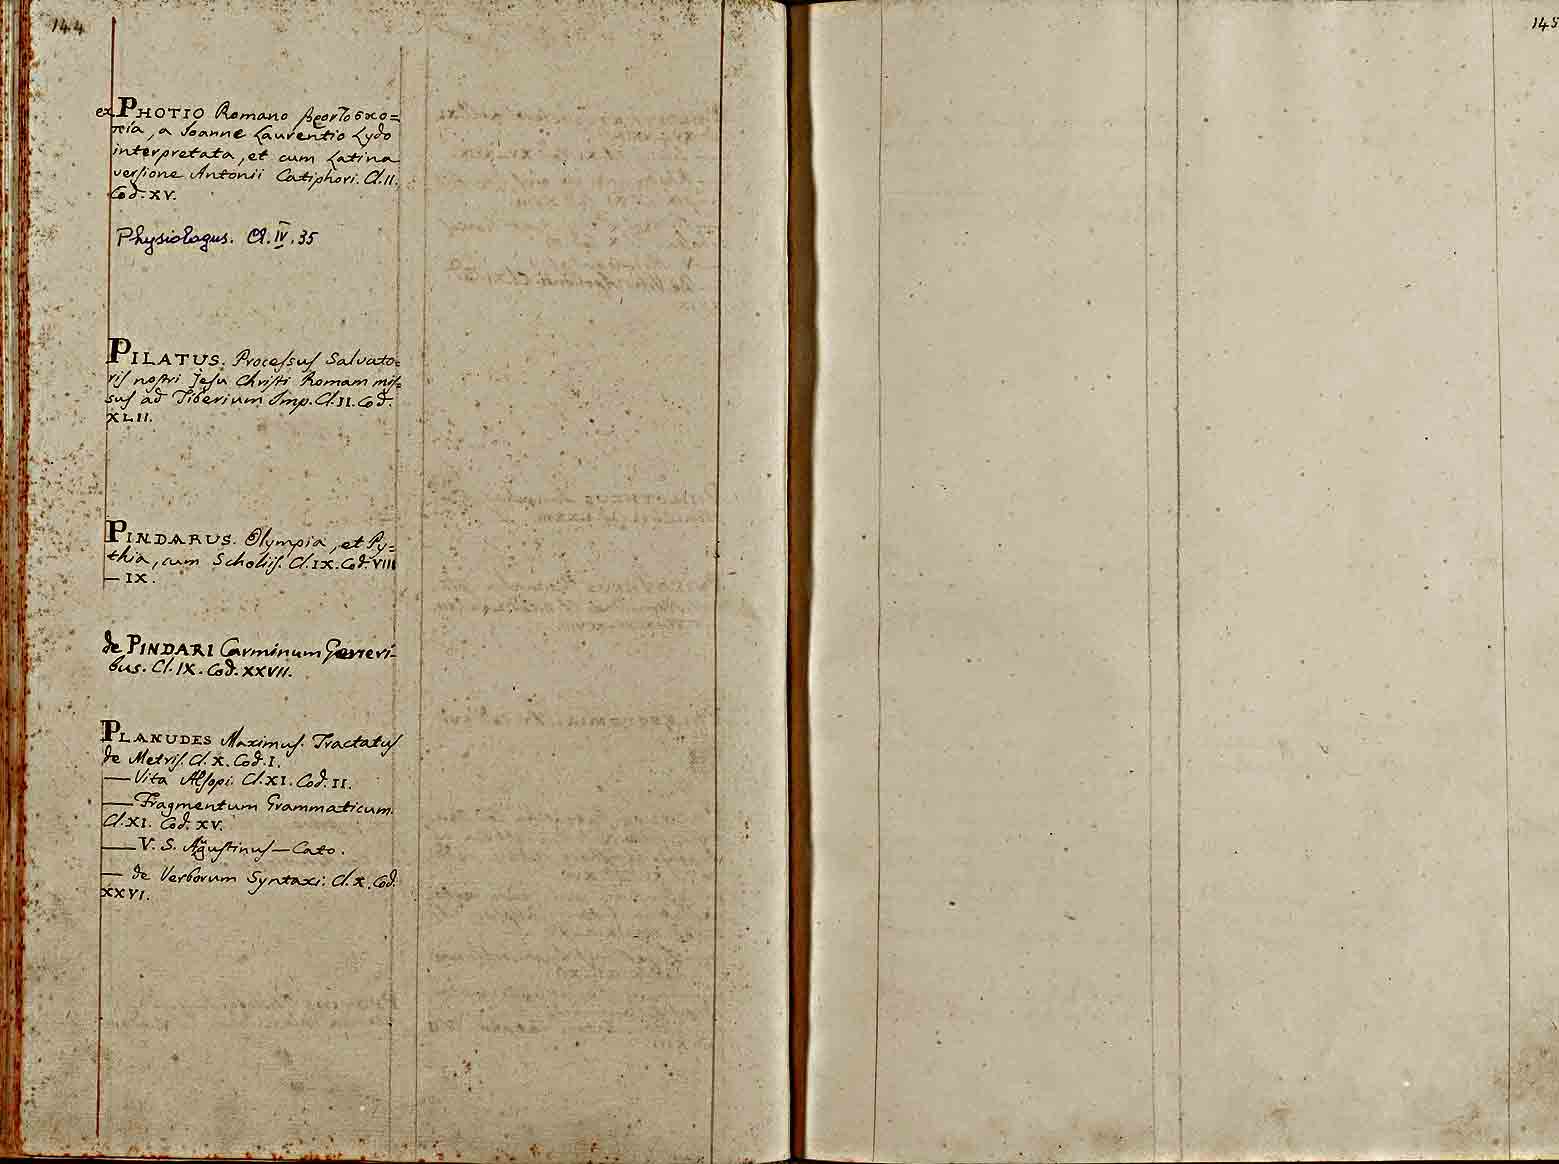 144
ex PHOTIO Romano βροντοσκο=
πία, a Joanne Laurentio Lydo
interpretata, et cum Latina
versione Antonii Catiphori. Cl. II.
Cod. XV.
Physiologus. Cl. IV. 35
PILATUS. Processus Salvato=
ris nostri Jesu Christi Romam mis=
sus ad Tiberium Imp. Cl. II. Cod.
XLII.
PINDARUS. Olympia, et Py=
thia, cum Scholiis. Cl. IX. Cod. VIII
— IX.
de PINDARI Carminum Generi-
bus. Cl. IX. Cod. XXVII.
PLANUDES Maximus. Tractatus
de Metris. Cl. X. Cod. I.
— Vita Aesopi. Cl. XI. Cod. II.
— Fragmentum Grammaticum.
Cl. XI. Cod. XV.
— V. S. Agustinus — Cato.
— de Verborum Syntaxi. Cl. X. Cod.
XXVI.
145